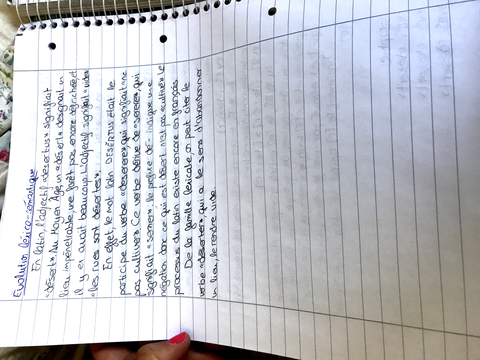 Evolution lexico-sémantique
En latin, l'adjectif «desertus» signifiait
«désert». Au Moyen Âge, un «désert» désignait un
lieu impénétrable, une forêt pas encore défrichée et
il y en avait beaucoup. L'adjectif signifiait «vide»
«les rues sont désertes».
En effet, le mot latin DESERTUS était le
participe du verbe «deserere», qui signifiait «ne
pas cultiver». Ce verbe dérive de «serere», qui
signifiait «semer», le préfixe de- indique une
négation donc ce qui est désert n'est pas cultivé. Le
processus du latin existe encore en français.
De la famille lexicale, on peut citer le
verbe «déserter», qui a le sens d'abandonner
un lieu, le rendre vide